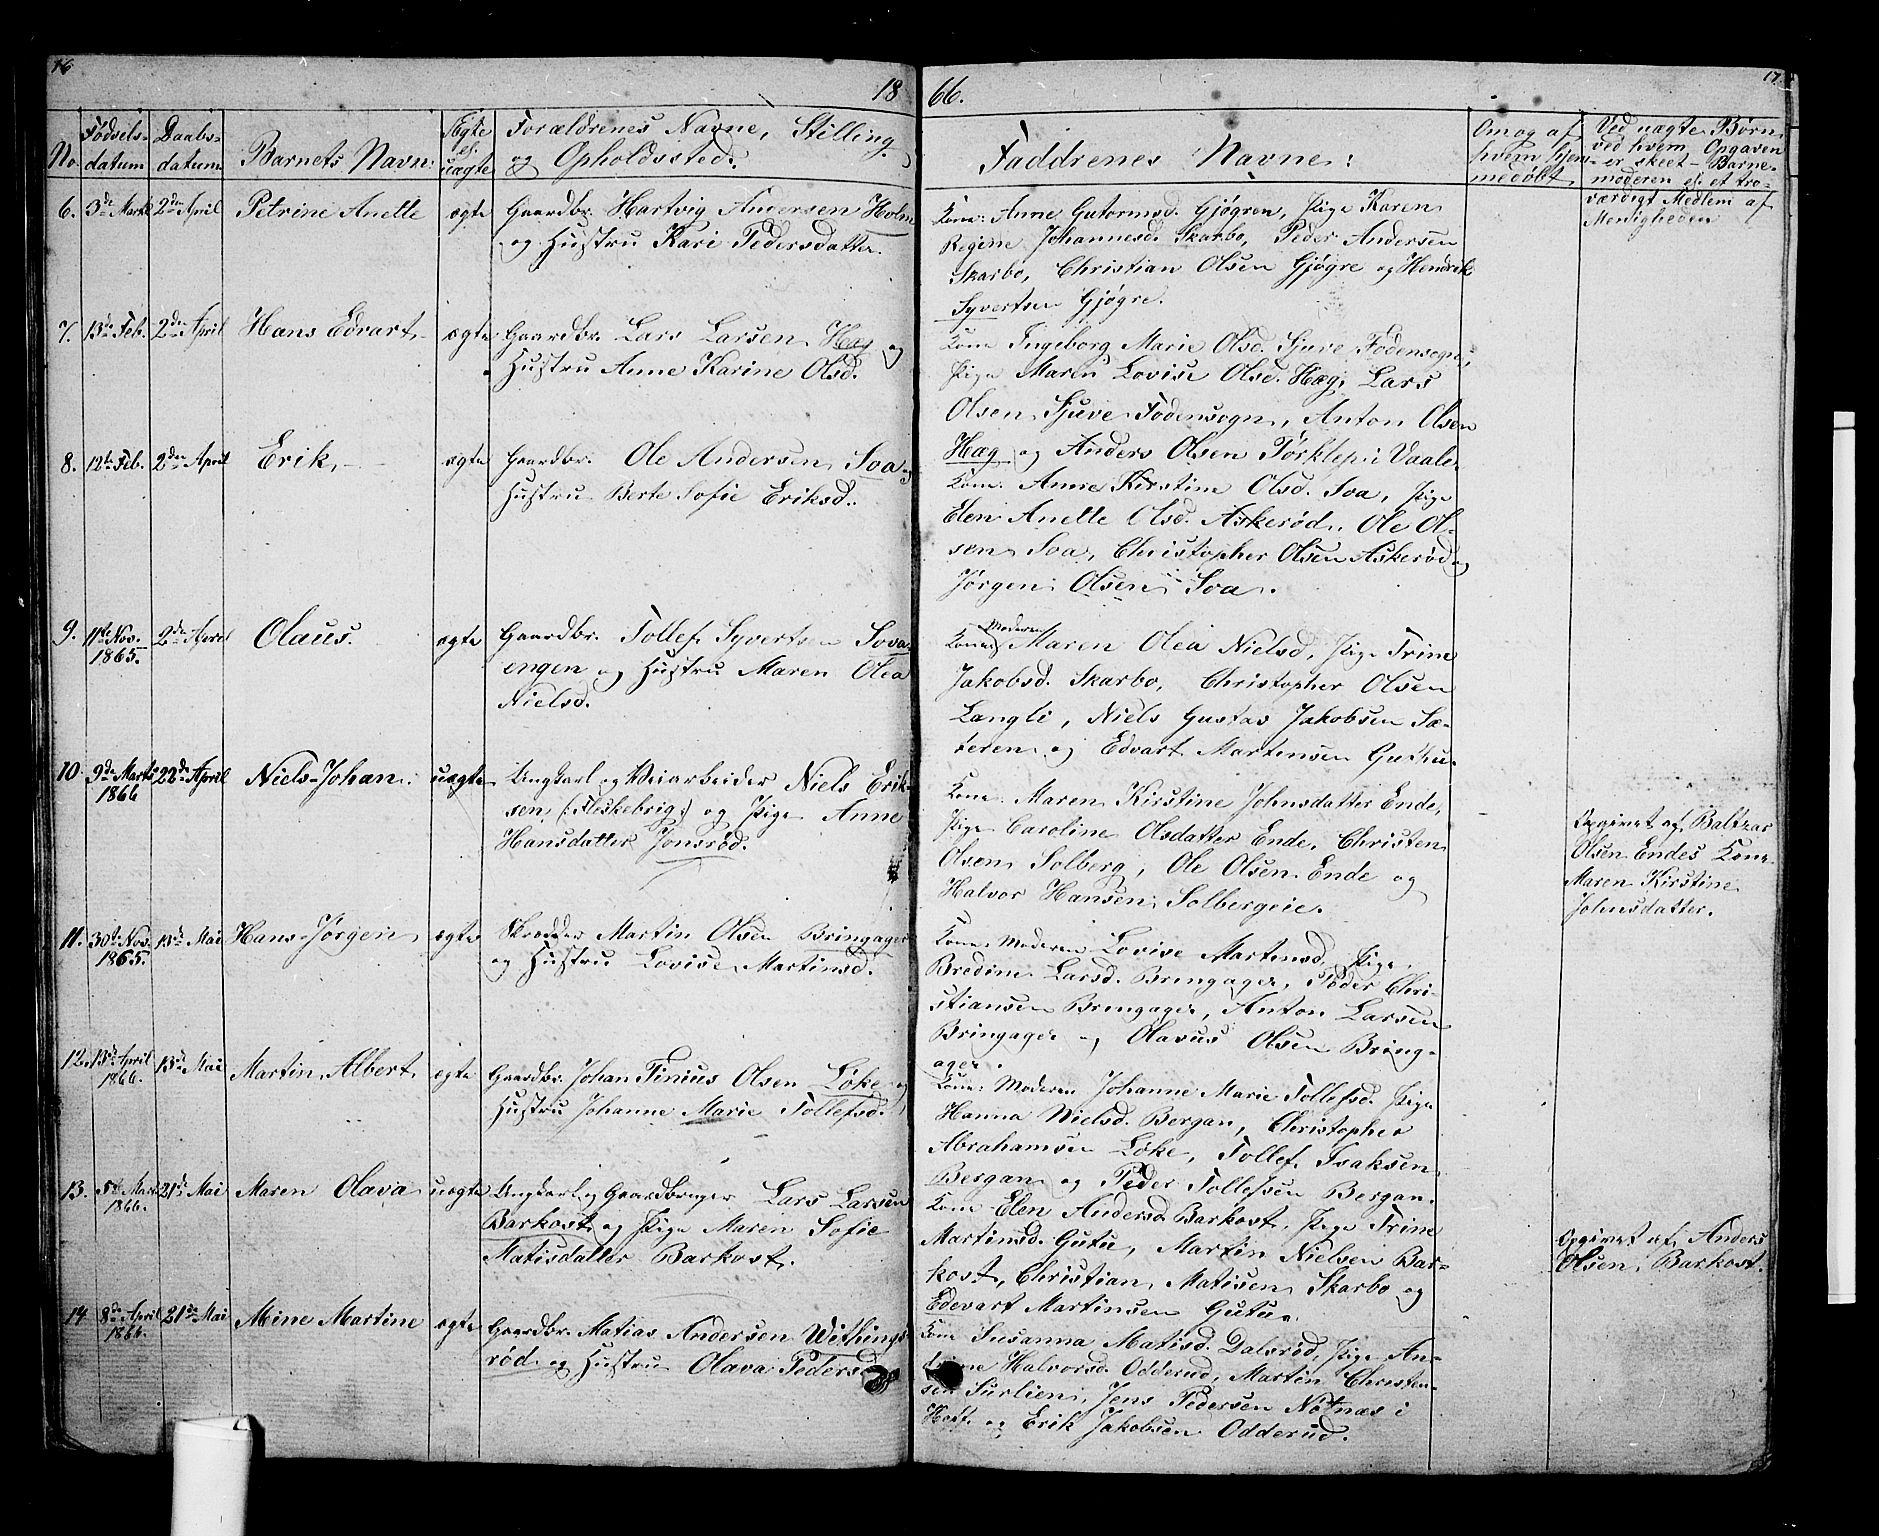 16
1866.
17.
No. Fødsels-datum Daabs-datum Barnets Navn: Ægte el. uægte Forældrenes Navne, Stilling og Opholdssted. Faddrenes Navne: Om og af hvem hjem-medøbt Ved uægte Børn ved hvem Opgaven er skeet – Barne-moderen el. et tro-værdigt Medlem af Menigheden
6. 3de Marts 2den April Petrine Anette ægte Gaardbr. Hartvig Andersen Holm
og Hustru Kari Pedersdatter.
Kone: Anne Gutormsd. Gjøgren, Pige Karen
Regine Johannesd. Skarbo, Peder Andersen
Skarbo, Christian Olsen Gjøgre og Hendrik
Syvertsen Gjøgre.
7. 13de Feb. 2den April Hans Edvart, ægte Gaardbr. Lars Larsen Hæg og
Hustru Anne Karine Olsd.
Kone Ingeborg Marie Olsd. Sjuve Fodensogn,
Pige Maren Lovise Olsd. Hæg, Lars
Olsen Sjuve Fodensogn, Anton Olsen
Hæg og Anders Olsen Torklep i Vaale.
8. 12te Feb. 2den April Erik, ægte Gaardbr. Ole Andersen Soa og
Hustru Berte Sofie Eriksd.
Kone: Anne Kirstine Olsd. Soa, Pige
Elen Anette Olsd. Askerød, Ole Ol-
sen Soa, Christopher Olsen Askerød og
Jørgen Olsen Soa.
9. 11te Nov. 1865. 2den April Olaus. ægte Gaardbr. Tollef Syvertsen Sova-
engen og Hustru Maren Olea
Nielsd.
Kone: Moderen Maren Olea Nielsd, Pige Trine
Jakobsd. Skarbo, Christopher Olsen
Langli, Niels Gustav Jakobsen Sæ-
teren og Edvart Martinsen Guthu.
10. 9de Marts 1866 22de April Niels Johan: uægte Ungkarl og Veiarbeider Niels Erik-
sen (: Fleskebrig:) og Pige Anne
Hansdatter Jonsrød.
Kone Maren Kirstine Johnsdatter Ende,
Pige Caroline Olsdatter Ende, Christen
Olsen Solberg, Ole Olsen Ende og
Halvor Hansen Solbergeie.
Opgivet af Baltzar
Olsen Endes Kone
Maren Kirstine
Johnsdatter.
11. 30te Nov. 1865. 13de Mai Hans Jørgen ægte Skrædder Martin Olsen Bringager
og Hustru Lovise Martinsd.
Kone: Moderen Lovise Martinsd, Pige
Bredine Larsd. Bringager, Peder Chri-
stiansen Bringager, Anton Larsen
Bringager og Olavus Olsen Bring-
ager.
12. 13de April 1866. 13de Mai Martin Albert ægte Gaardbr. Johan Tinius Olsen Løke og
Hustru Johanne Marie Tollefsd.
Kone: Moderen Johanne Marie Tollefsd. Pige
Hanna Nielsd. Bergan, Christopher
Abrahamsen Løke, Tollef Isaksen
Bergan og Peder Tollefsen Bergan.
13. 5te Marts 1866. 21de Mai Maren Olava uægte Ungkarl og Gaardbruger Lars Larsen
Barkost og Pige Maren Sofie
Matisdatter Barkost.
Kone Elen Andersd Barkost. Pige Trine
Martinsd. Gutu, Martin Nielsen Bar-
kost, Christian Matisen Skarbo og
Edevart Martinsen Gutu.
Opgivet af Anders
Olsen Barkost.
14 8de April 1866. 21de Mai Mine Martine ægte Gaardbr. Matias Andersen Withings-
rød og Hustru Olava Pedersd
Kone Susanna Matisd. Dalsrød, Pige An-
Halvorsd. Odderud, Martin Christen-
sen Surlien, Jens Pedersen Nøtnæs i
Hoff og Erik Jakobsen Odderud.